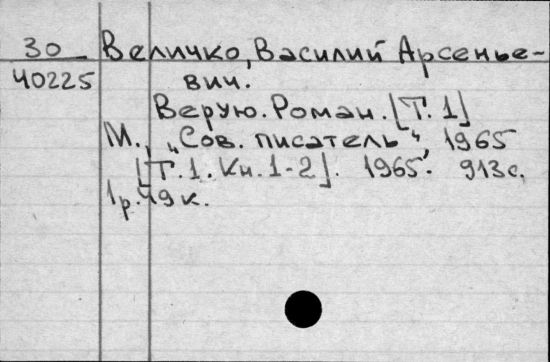 30 Величко, Василий Арсенье-
40225 вич.
Верую. Роман. [Т. 1]
М., „Сов. писатель“, 1965
[Т. 1. Кн. 1-2]. 1965. 913 с.
1 р. 49 к.